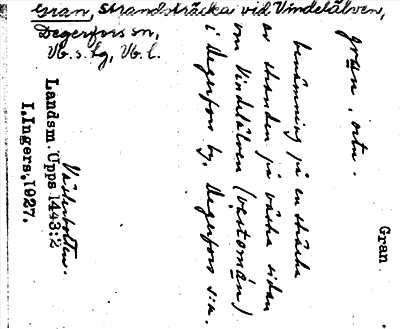 Gran, strandsträcka vid Vindelälven,
Degerfors sn,
Vb. s. lg, Vb. l.
Gran
grån, ortn.
benämning på en sträcka
av stranden på västra sidan
om Vindelälven (västomån)
i Degerfors by, Degerfors s:n.
Västerbotten.
Landsm. Upps 1443:2
I. Ingers. 1927.